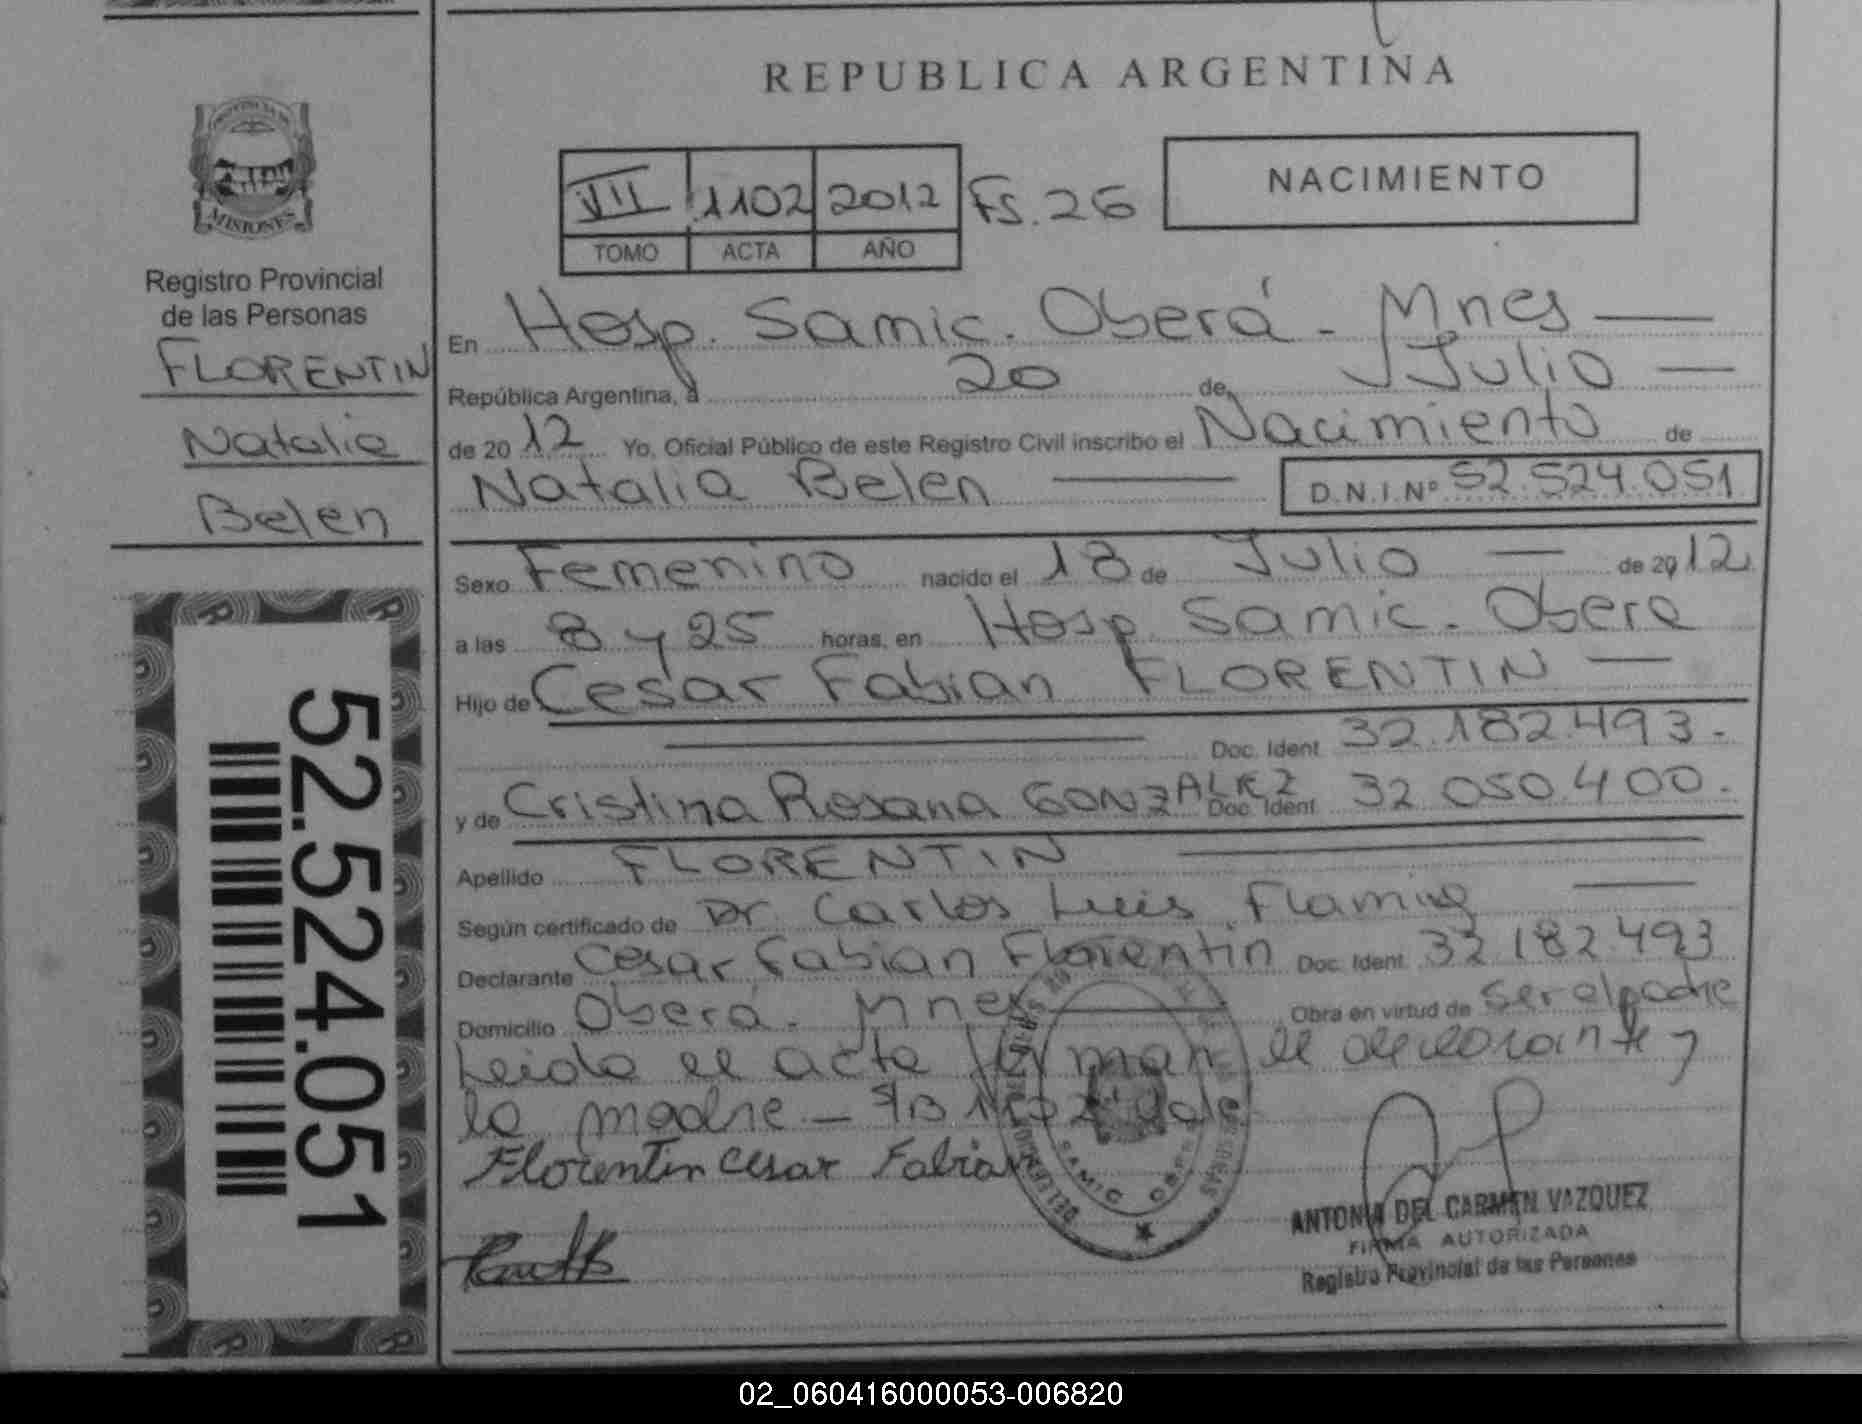 REPUBLICA ARGENTINA
MISIONES
Registro Provincial
de las Personas
FLORENTIN
Natalia
Belen
52.524.051
VII 1102 2012 Fs. 26
TOMO ACTA AÑO
NACIMIENTO
En Hosp. Samic. Oberá - Mnes
República Argentina, a 20 de Julio
de 2012 Yo, Oficial Público de este Registro Civil inscribo el Nacimiento de
Natalia Belen D.N.I.Nº 52.524.051
Sexo Femenino nacido el 18 de Julio de 2012
a las 8 y 25 horas, en Hosp. Samic. Obera
Hijo de Cesar Fabian FLORENTIN
Doc. Ident. 32.182.493.
y de Cristina Rosana GONZALEZ Doc. Ident. 32.050.400.
Apellido FLORENTIN
Según certificado de Dr. Carlos Luis Flaming
Declarante Cesar Fabian Florentin Doc. Ident. 32.182.493
Domicilio Oberá. Mnes Obra en virtud de ser el padre
Leida el acta firman el declarante y
la madre - S/B 1102 Vale
Florentin Cesar Fabian
SAMIC
ANTONIA DEL CARMEN VAZQUEZ
FIRMA AUTORIZADA
Registro Provincial de las Personas
02_060416000053-006820